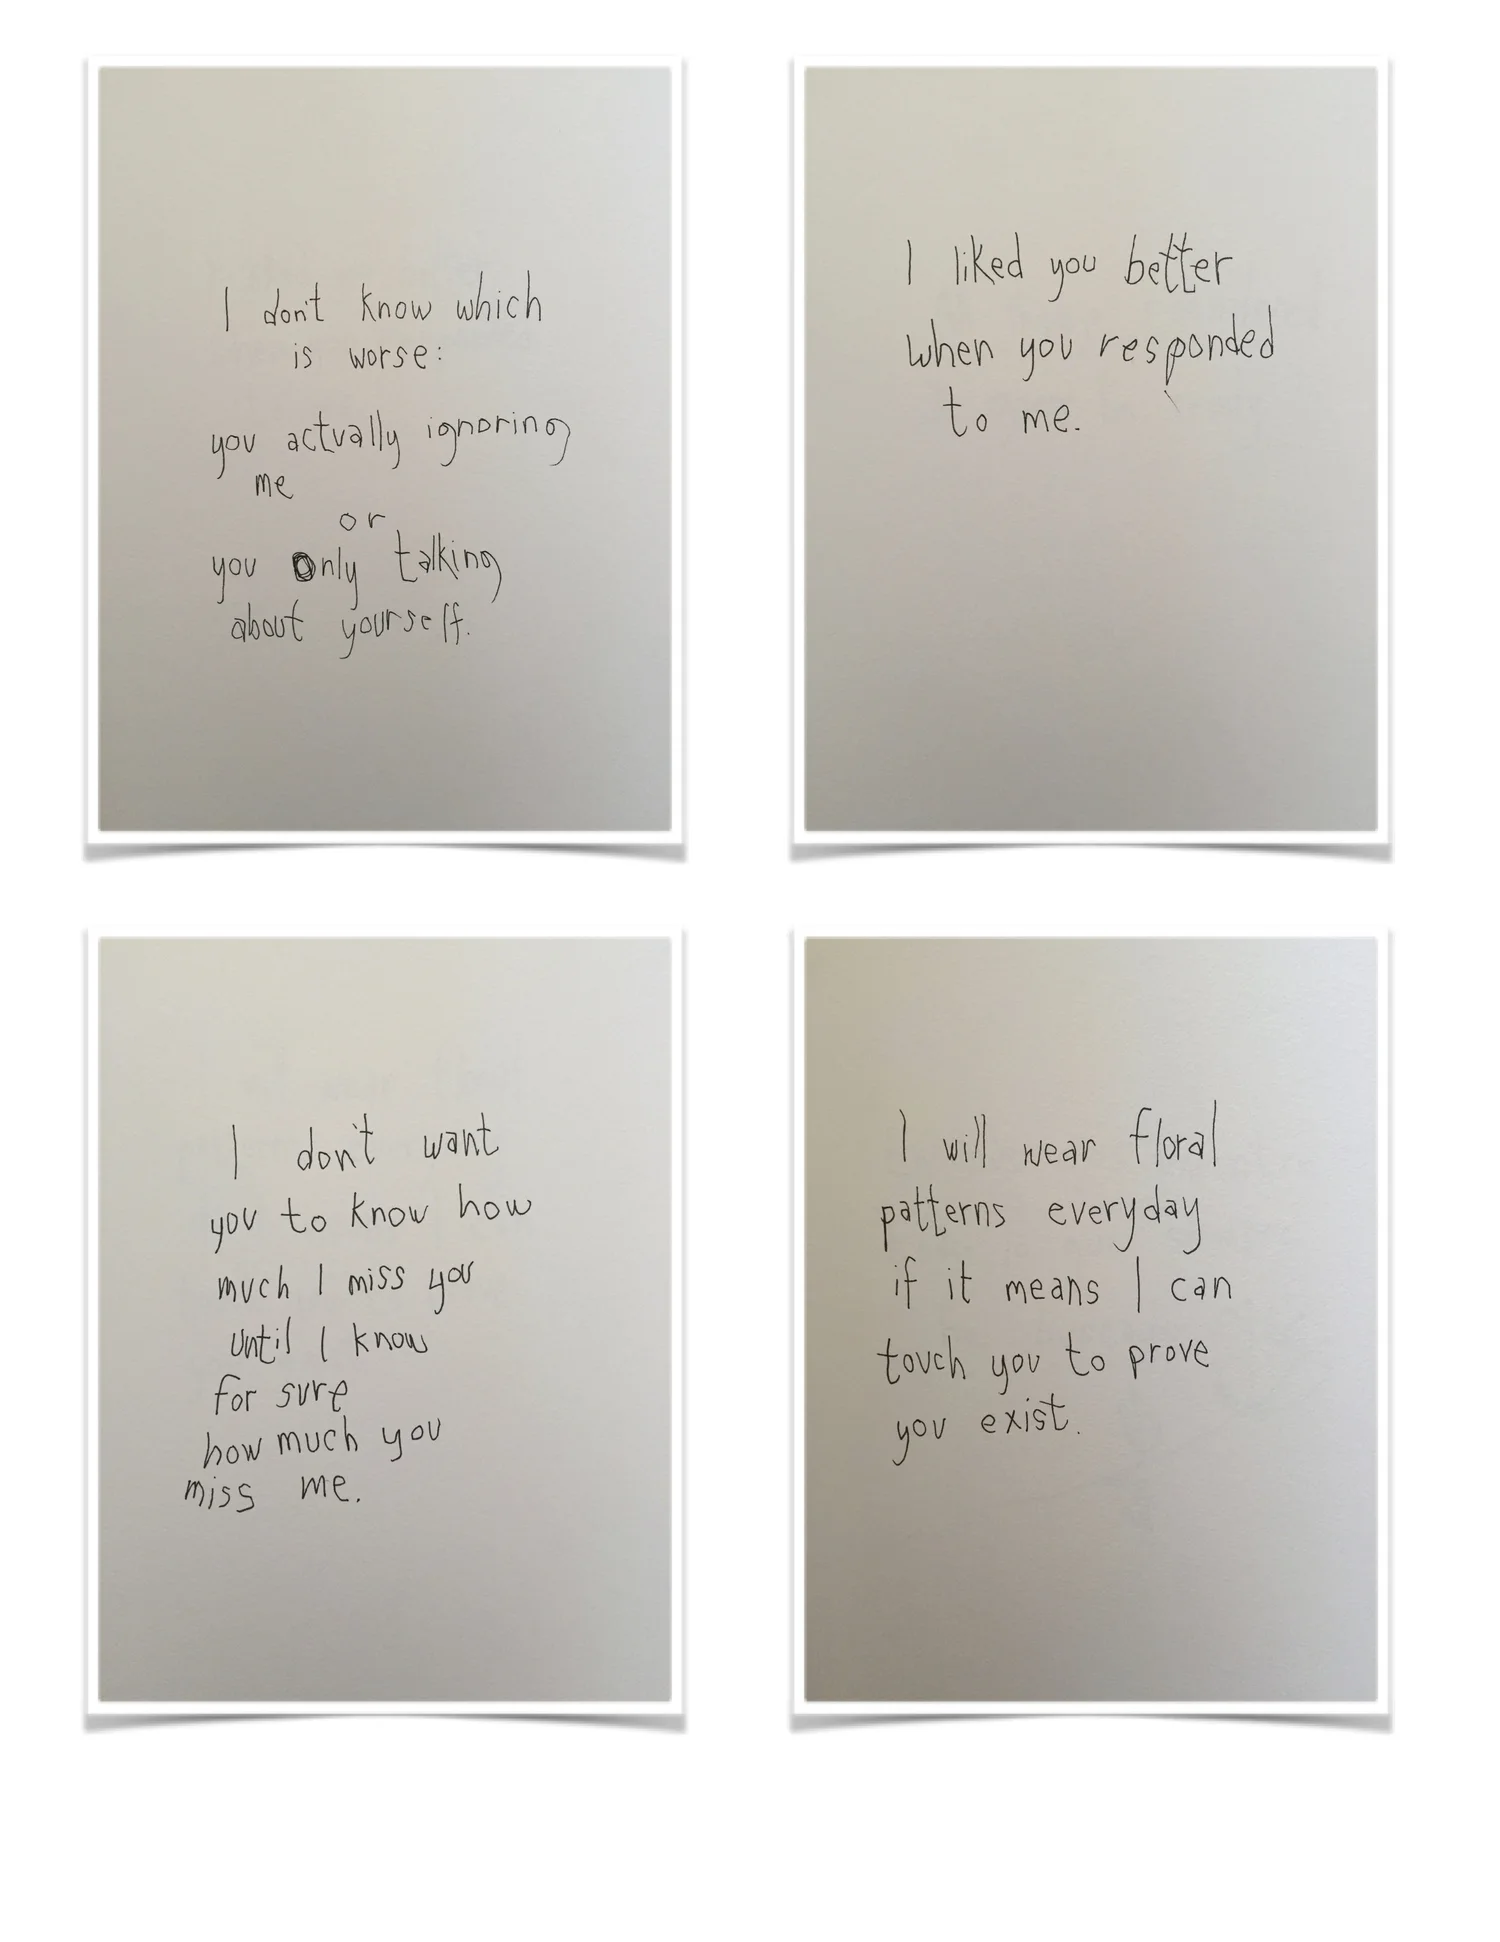 I don't know which
is worse:
you actually ignoring
me
or
you only talking
about yourself.
I liked you better
when you responded
to me.
I don't want
you to know how
much I miss you
until I know
for sure
how much you
miss me.
I will wear floral
patterns everyday
if it means I can
touch you to prove
you exist.